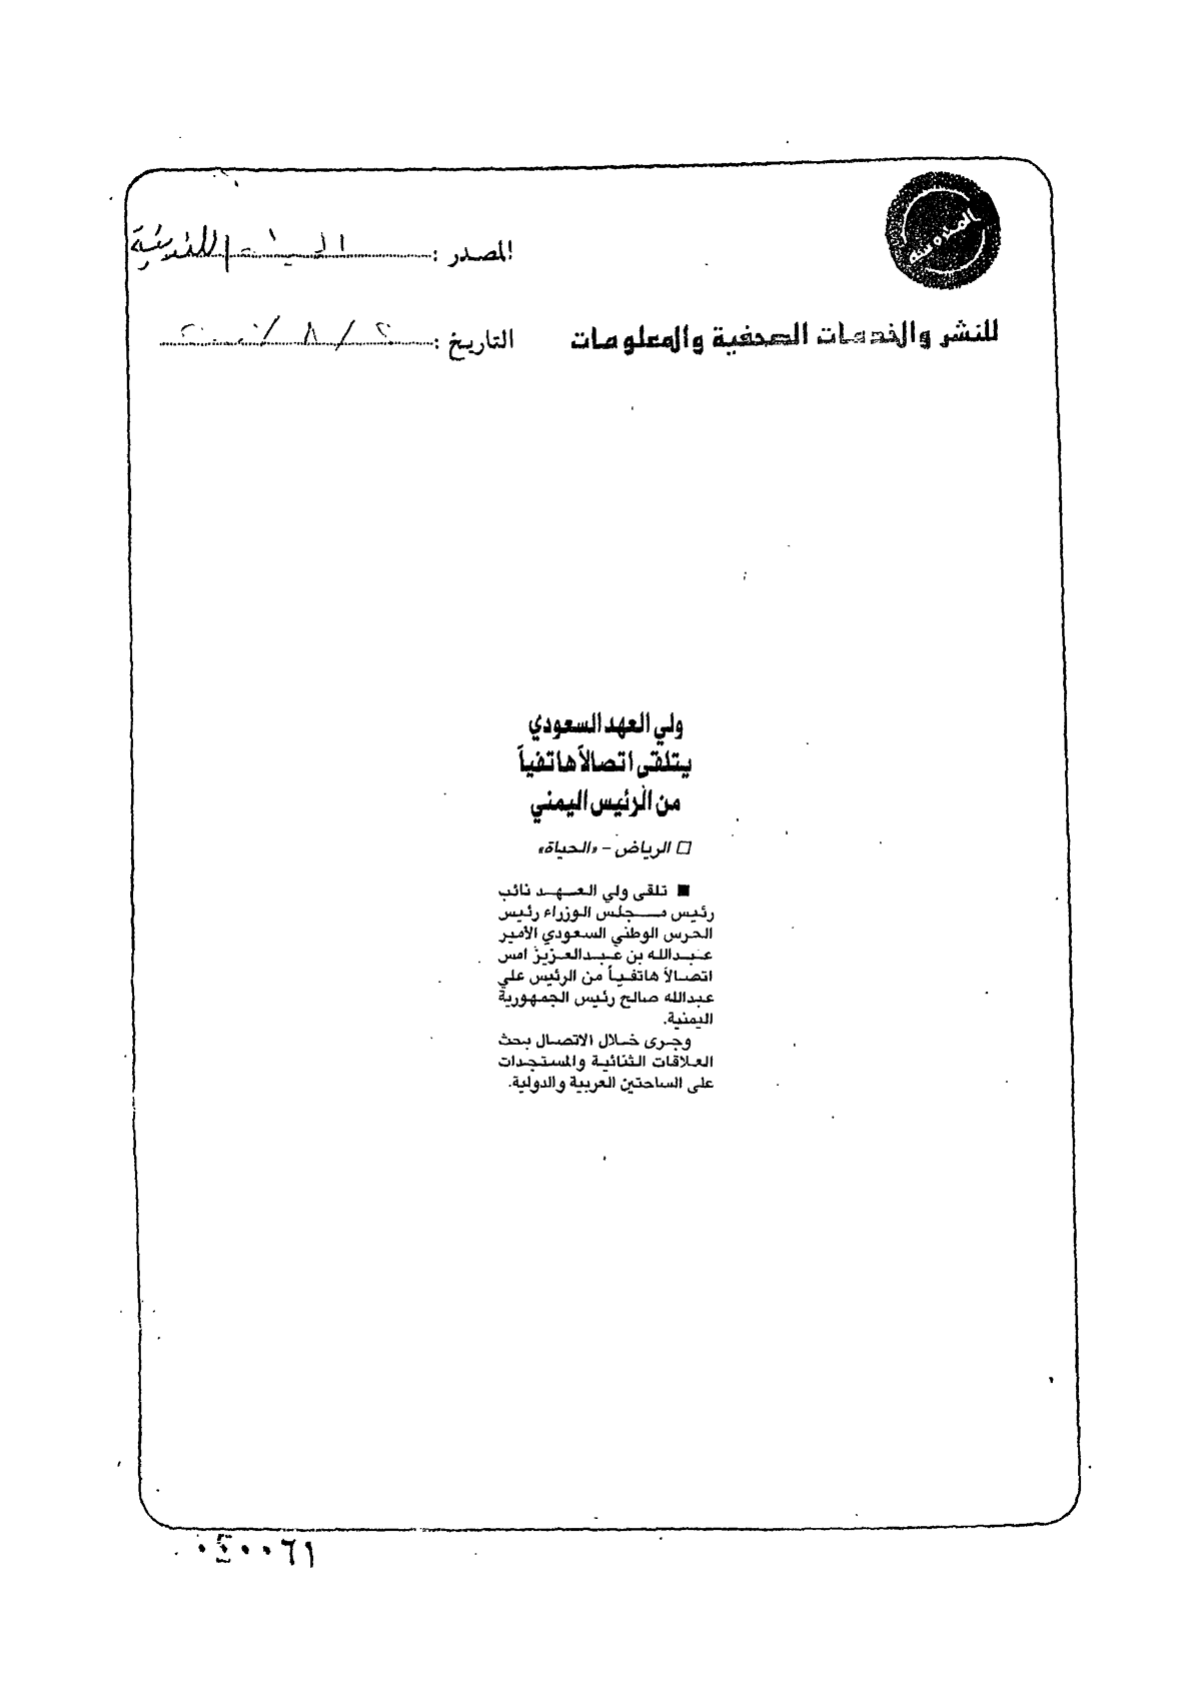 المصدر : الحياة اللندنية
للنشر والخدمات الصحفية والمعلومات
التاريخ : ٢ / ٨ / ٢٠٠٠
ولي العهد السعودي
يتلقى اتصالاً هاتفياً
من الرئيس اليمني
□ الرياض – «الحياة»
■ تلقى ولي العهد نائب
رئيس مجلس الوزراء رئيس
الحرس الوطني السعودي الأمير
عبدالله بن عبدالعزيز امس
اتصالاً هاتفياً من الرئيس علي
عبدالله صالح رئيس الجمهورية
اليمنية.
وجرى خلال الاتصال بحث
العلاقات الثنائية والمستجدات
على الساحتين العربية والدولية.